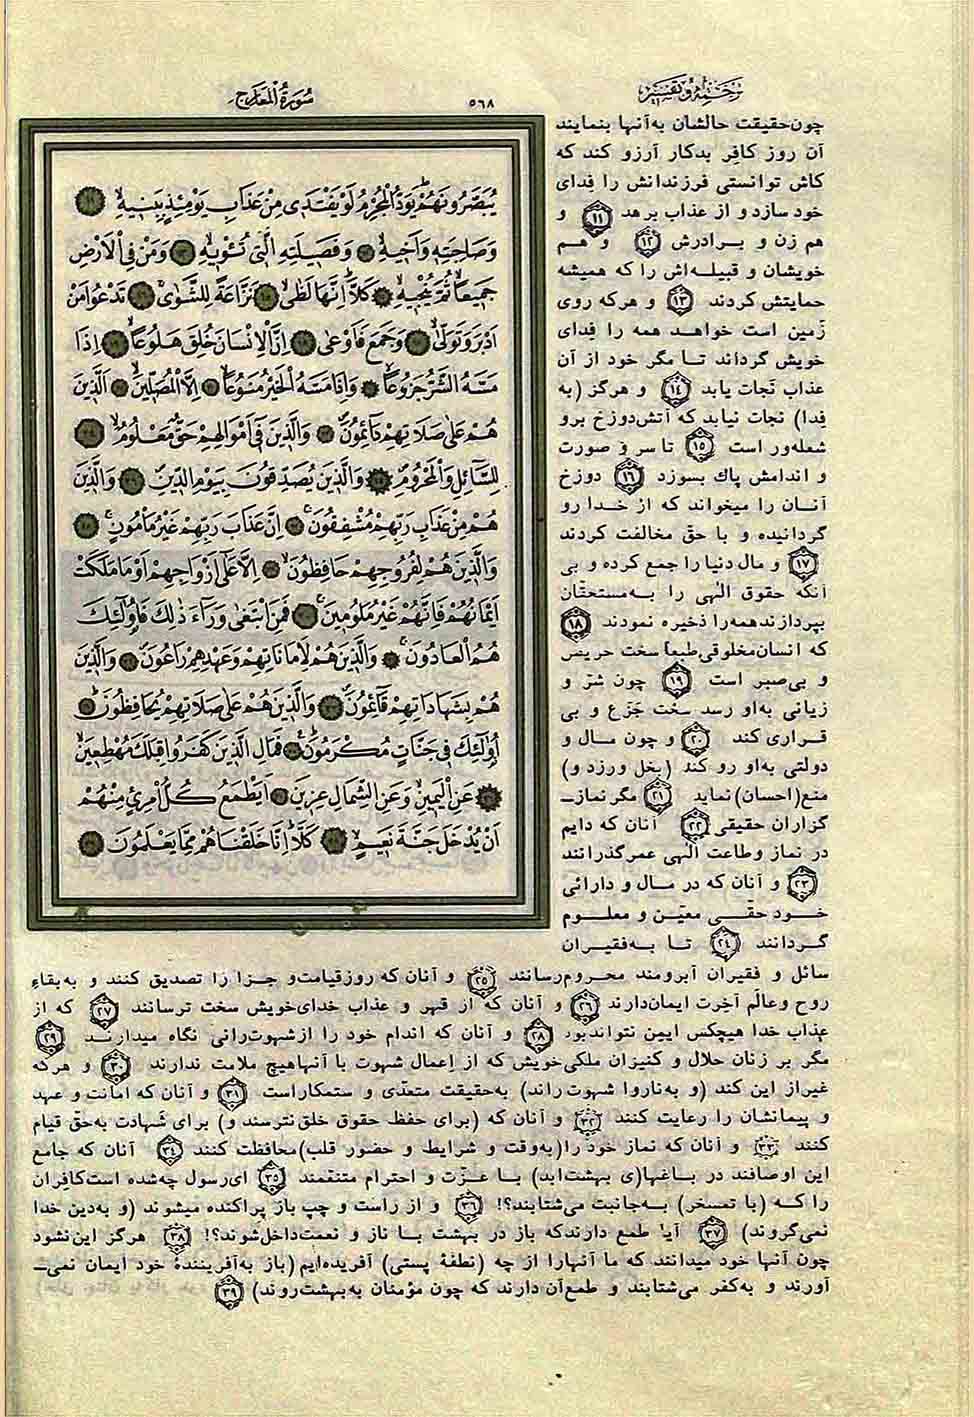 ترجمه و تفسیر
٥٦٨
سُورَةُ الْمَعَارِجِ
يُبَصَّرُونَهُمْ يَوَدُّ الْمُجْرِمُ لَوْ يَفْتَدِى مِنْ عَذَابِ يَوْمِئِذٍ بِبَنِيهِ ١١
وَصَاحِبَتِهِ وَاَخِيهِ ١٢ وَفَصِيلَتِهِ الَّتى تُؤْيهِ ١٣ وَمَنْ فِى الْاَرْضِ
جَمِيعاً ثُمَّ يُنْجِيهِ ١٤ كَلَّا اِنَّهَا لَظى ١٥ نَزَّاعَةً لِلشَّوٰى ١٦ تَدْعُوا مَنْ
اَدْبَرَ وَتَوَلّى ١٧ وَجَمَعَ فَاَوْعى ١٨ اِنَّ الْاِنْسَانَ خُلِقَ هَلُوعاً ١٩ اِذَا
مَسَّهُ الشَّرُّ جَزُوعاً ٢٠ وَاِذَا مَسَّهُ الْخَيْرُ مَنُوعاً ٢١ اِلَّا الْمُصَلِّينَ ٢٢ اَلَّذِينَ
هُمْ عَلى صَلَاتِهِمْ دَآئِمُونَ ٢٣ وَالَّذِينَ فِى اَمْوَالِهِمْ حَقٌّ مَعْلُومٌ ٢٤
لِلسَّآئِلِ وَالْمَحْرُومِ ٢٥ وَالَّذِينَ يُصَدِّقُونَ بِيَوْمِ الدِّينِ ٢٦ وَالَّذِينَ
هُمْ مِنْ عَذَابِ رَبِّهِمْ مُشْفِقُونَ ٢٧ اِنَّ عَذَابَ رَبِّهِمْ غَيْرُ مَأْمُونٍ ٢٨
وَالَّذِينَ هُمْ لِفُرُوجِهِمْ حَافِظُونَ ٢٩ اِلَّا عَلى اَزْوَاجِهِمْ اَوْ مَا مَلَكَتْ
اَيْمَانُهُمْ فَاِنَّهُمْ غَيْرُ مَلُومِينَ ٣٠ فَمَنِ ابْتَغى وَرَآءَ ذٰلِكَ فَاُولٰئِكَ
هُمُ الْعَادُونَ ٣١ وَالَّذِينَ هُمْ لِاَمَانَاتِهِمْ وَعَهْدِهِمْ رَاعُونَ ٣٢ وَالَّذِينَ
هُمْ بِشَهَادَاتِهِمْ قَآئِمُونَ ٣٣ وَالَّذِينَ هُمْ عَلى صَلَاتِهِمْ يُحَافِظُونَ ٣٤
اُولٰئِكَ فِى جَنَّاتٍ مُكْرَمُونَ ٣٥ فَمَالِ الَّذِينَ كَفَرُوا قِبَلَكَ مُهْطِعِينَ ٣٦
عَنِ الْيَمِينِ وَعَنِ الشِّمَالِ عِزِينَ ٣٧ اَيَطْمَعُ كُلُّ امْرِئٍ مِنْهُمْ
اَنْ يُدْخَلَ جَنَّةَ نَعِيمٍ ٣٨ كَلَّا اِنَّا خَلَقْنَاهُمْ مِمَّا يَعْلَمُونَ ٣٩
چون حقیقت حالشان به آنها بنمایند
آن روز کافر بدکار آرزو کند که
کاش توانستی فرزندانش را فدای
خود سازد و از عذاب برهد ١١ و
هم زن و برادرش ١٢ و هم
خویشان و قبیله‌اش را که همیشه
حمایتش کردند ١٣ و هر که روی
زمین است خواهد همه را فدای
خویش گرداند تا مگر خود از آن
عذاب نجات یابد ١٤ و هرگز (به
فدا) نجات نیابد که آتش دوزخ برو
شعله‌ور است ١٥ تا سر و صورت
و اندامش پاک بسوزد ١٦ دوزخ
آنان را میخواند که از خدا رو
گردانیده و با حق مخالفت کردند
١٧ و مال دنیا را جمع کرده و بی
آنکه حقوق الهی را به مستحقان
بپردازند همه را ذخیره نمودند ١٨
که انسان مخلوقی طبعاً سخت حریص
و بی‌صبر است ١٩ چون شر و
زیانی به او رسد سخت جزع و بی
قراری کند ٢٠ و چون مال و
دولتی به او رو کند (بخل ورزد و)
منع (احسان) نماید ٢١ مگر نماز-
گزاران حقیقی ٢٢ آنان که دایم
در نماز و طاعت الهی عمر گذرانند
٢٣ و آنان که در مال و دارائی
خود حقی معین و معلوم
گردانند ٢٤ تا به فقیران
سائل و فقیران آبرومند محروم رسانند ٢٥ و آنان که روز قیامت و جزا را تصدیق کنند و به بقاء
روح و عالم آخرت ایمان دارند ٢٦ و آنان که از قهر و عذاب خدای خویش سخت ترسانند ٢٧ که از
عذاب خدا هیچکس ایمن نتواند بود ٢٨ و آنان که اندام خود را از شهوت‌رانی نگاه میدارند ٢٩
مگر بر زنان حلال و کنیزان ملکی خویش که از اعمال شهوت با آنها هیچ ملامت ندارند ٣٠ و هر که
غیر از این کند (و به ناروا شهوت راند) به حقیقت متعدی و ستمکار است ٣١ و آنان که امانت و عهد
و پیمانشان را رعایت کنند ٣٢ و آنان که (برای حفظ حقوق خلق نترسند و) برای شهادت به حق قیام
کنند ٣٣ و آنان که نماز خود را (به وقت و شرایط و حضور قلب) محافظت کنند ٣٤ آنان که جامع
این اوصافند در باغها(ی بهشت ابد) با عزت و احترام متنعمند ٣٥ ای رسول چه شده است کافران
را که (با تمسخر) به جانبت می‌شتابند؟! ٣٦ و از راست و چپ باز پراکنده میشوند (و به دین خدا
نمی‌گروند) ٣٧ آیا طمع دارند که باز در بهشت با ناز و نعمت داخل شوند؟! ٣٨ هرگز این نشود
چون آنها خود میدانند که ما آنها را از چه (نطفهٔ پستی) آفریده‌ایم (باز به آفرینندهٔ خود ایمان نمی-
آورند و به کفر می‌شتابند و طمع آن دارند که چون مؤمنان به بهشت روند) ٣٩